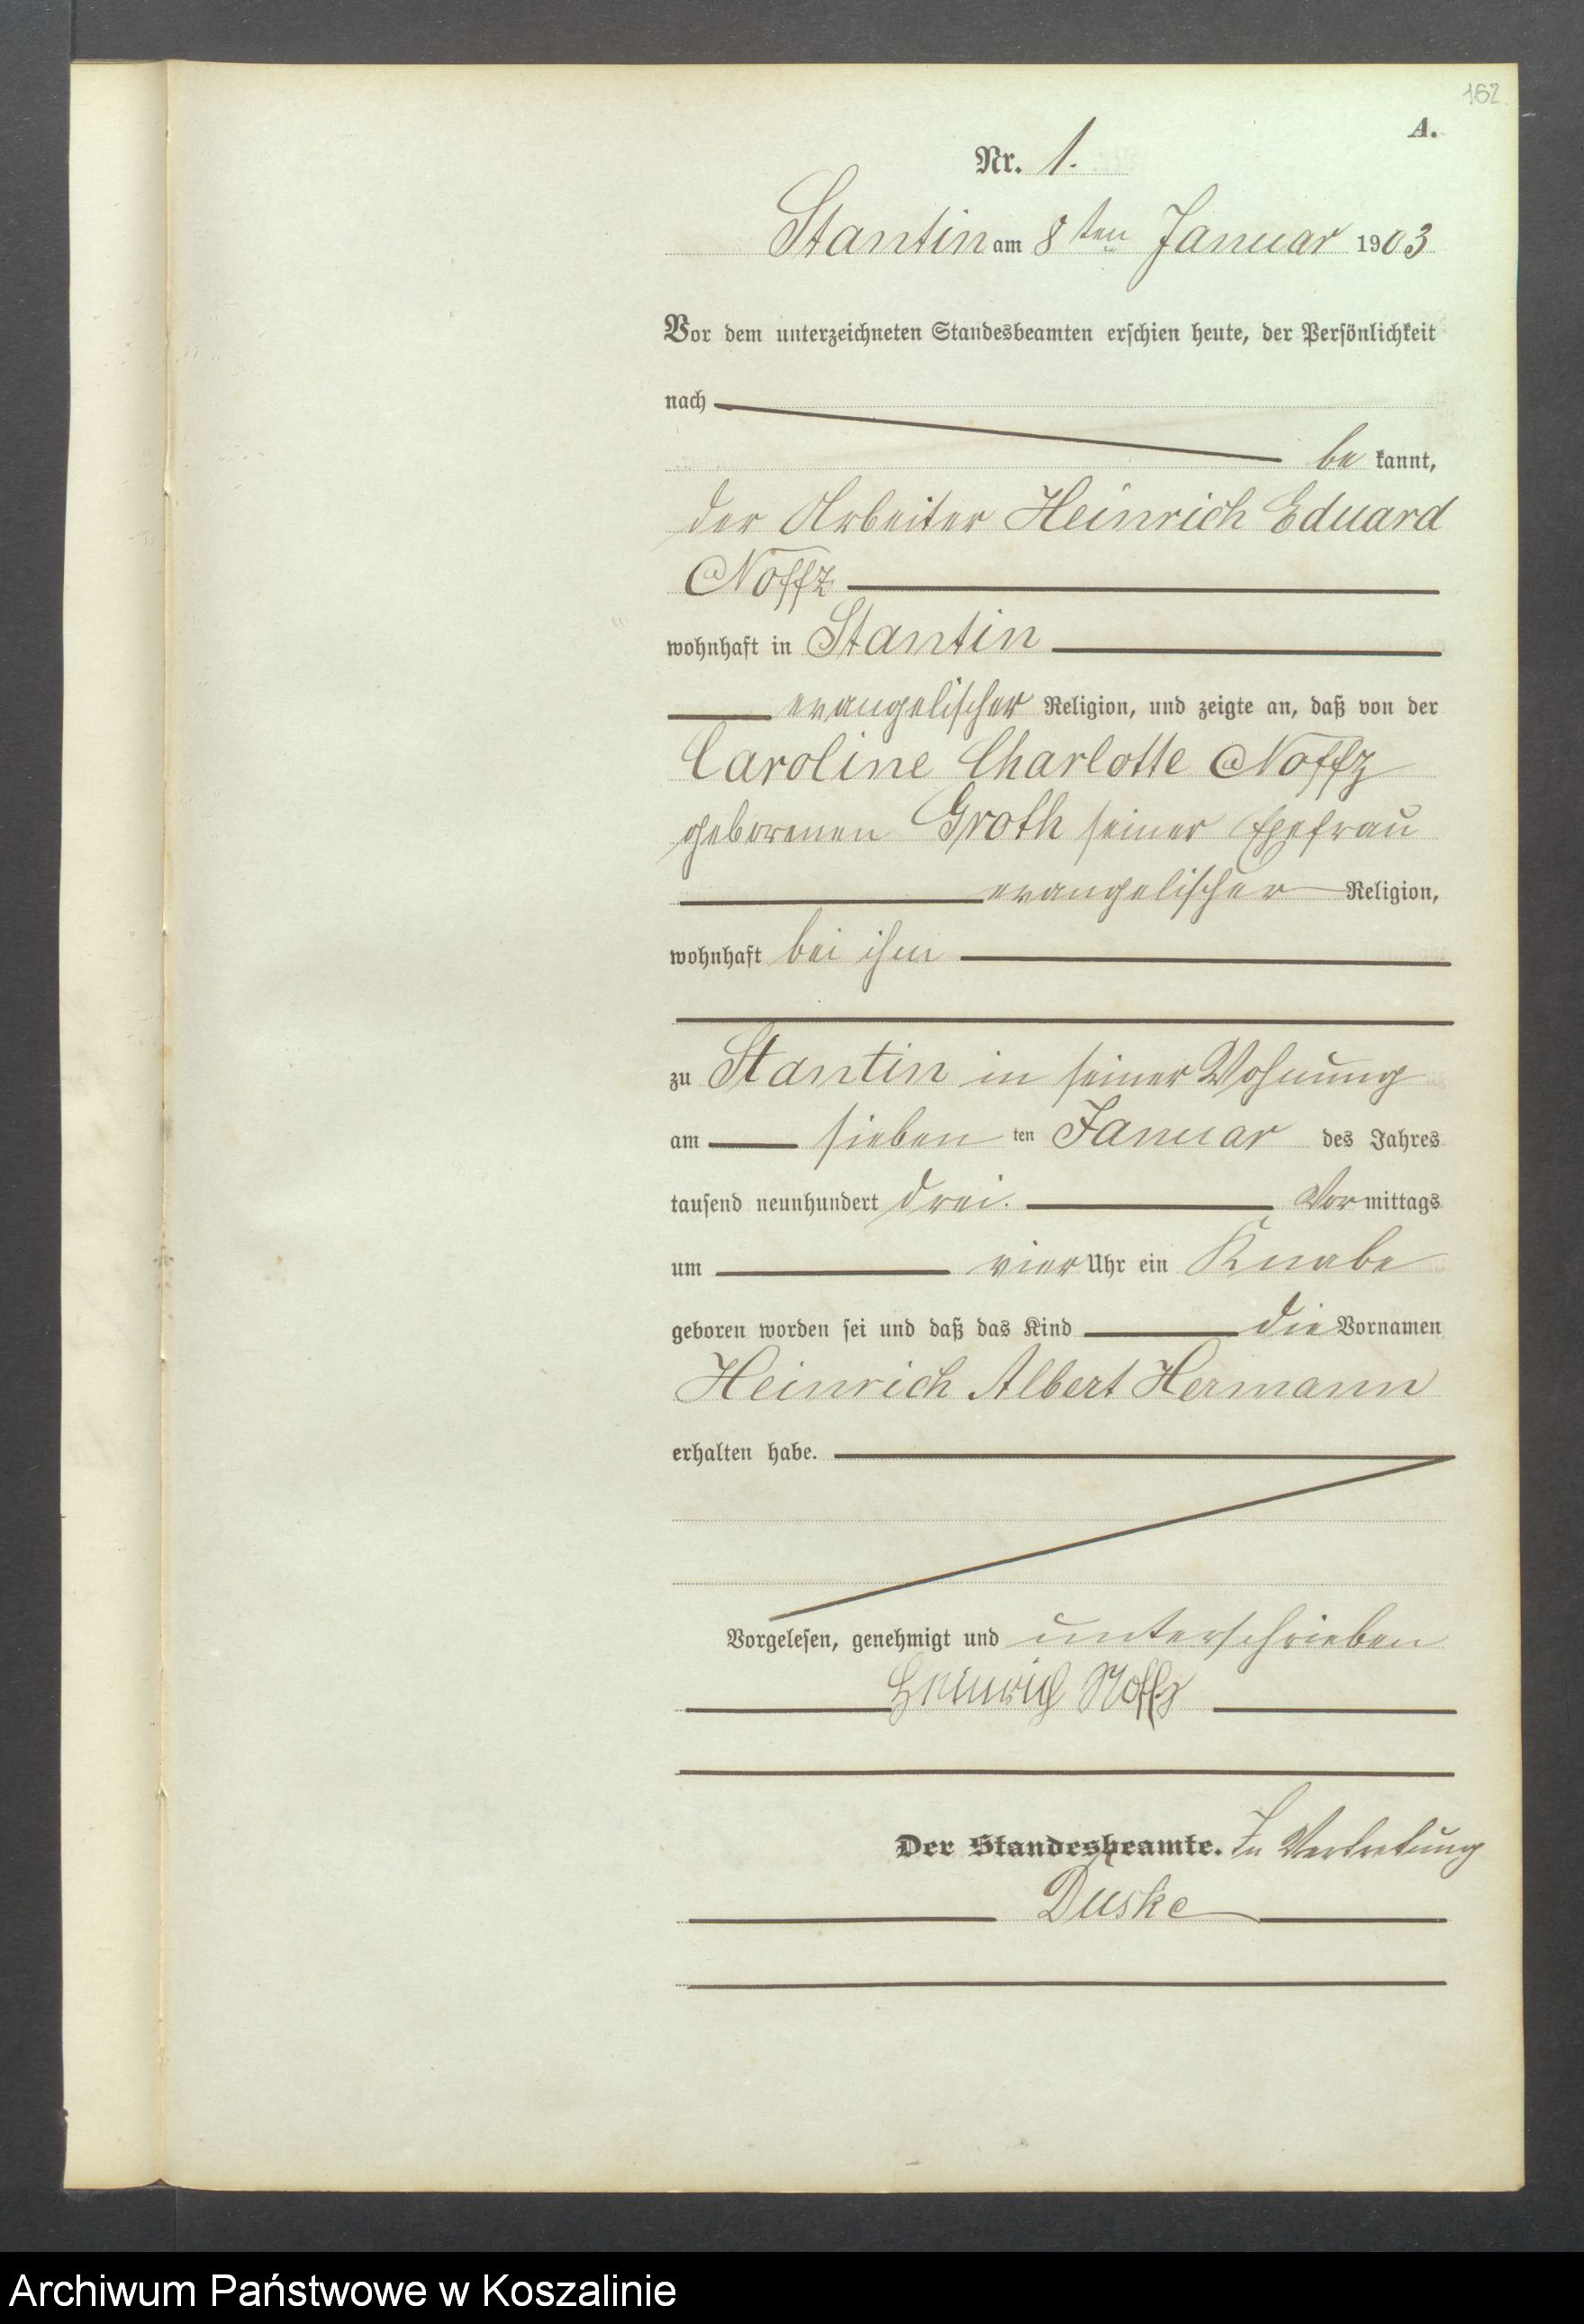 162
A.
Nr. 1.
Stantin am 8ten Januar 1903
Vor dem unterzeichneten Standesbeamten erschien heute, der Persönlichkeit
nach
be kannt,
der Arbeiter Heinrich Eduard
Noffz
wohnhaft in Stantin
evangelischer Religion, und zeigte an, daß von der
Caroline Charlotte Noffz
geborenen Groth seiner Ehefrau
evangelischer Religion,
wohnhaft bei ihm
zu Stantin in seiner Wohnung
am sieben ten Januar des Jahres
tausend neunhundert drei. Vor mittags
um vier Uhr ein Knabe
geboren worden sei und daß das Kind die Vornamen
Heinrich Albert Hermann
erhalten habe.
Vorgelesen, genehmigt und unterschrieben
Heinrich Noffz
Der Standesbeamte. In Vertretung
Duske
Archiwum Państwowe w Koszalinie